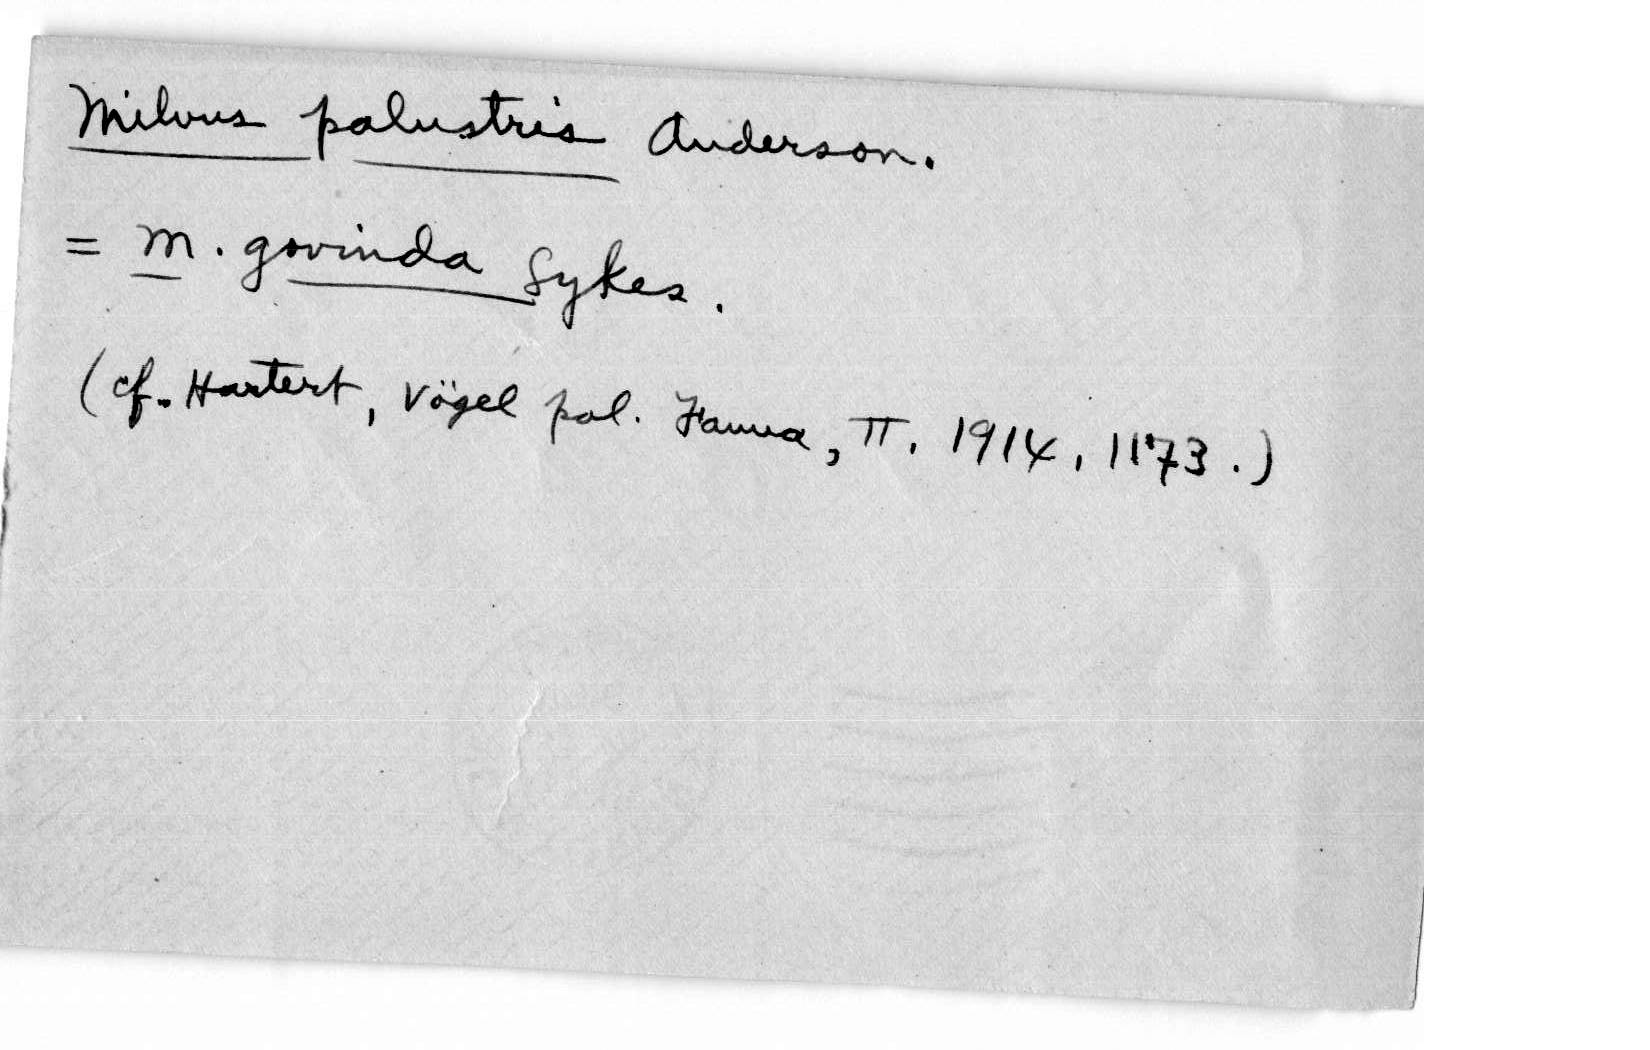 Milvus palustris Anderson.
= M. govinda Sykes.
(cf. Hartert, Vögel pal. Fauna, II. 1914, 1173.)